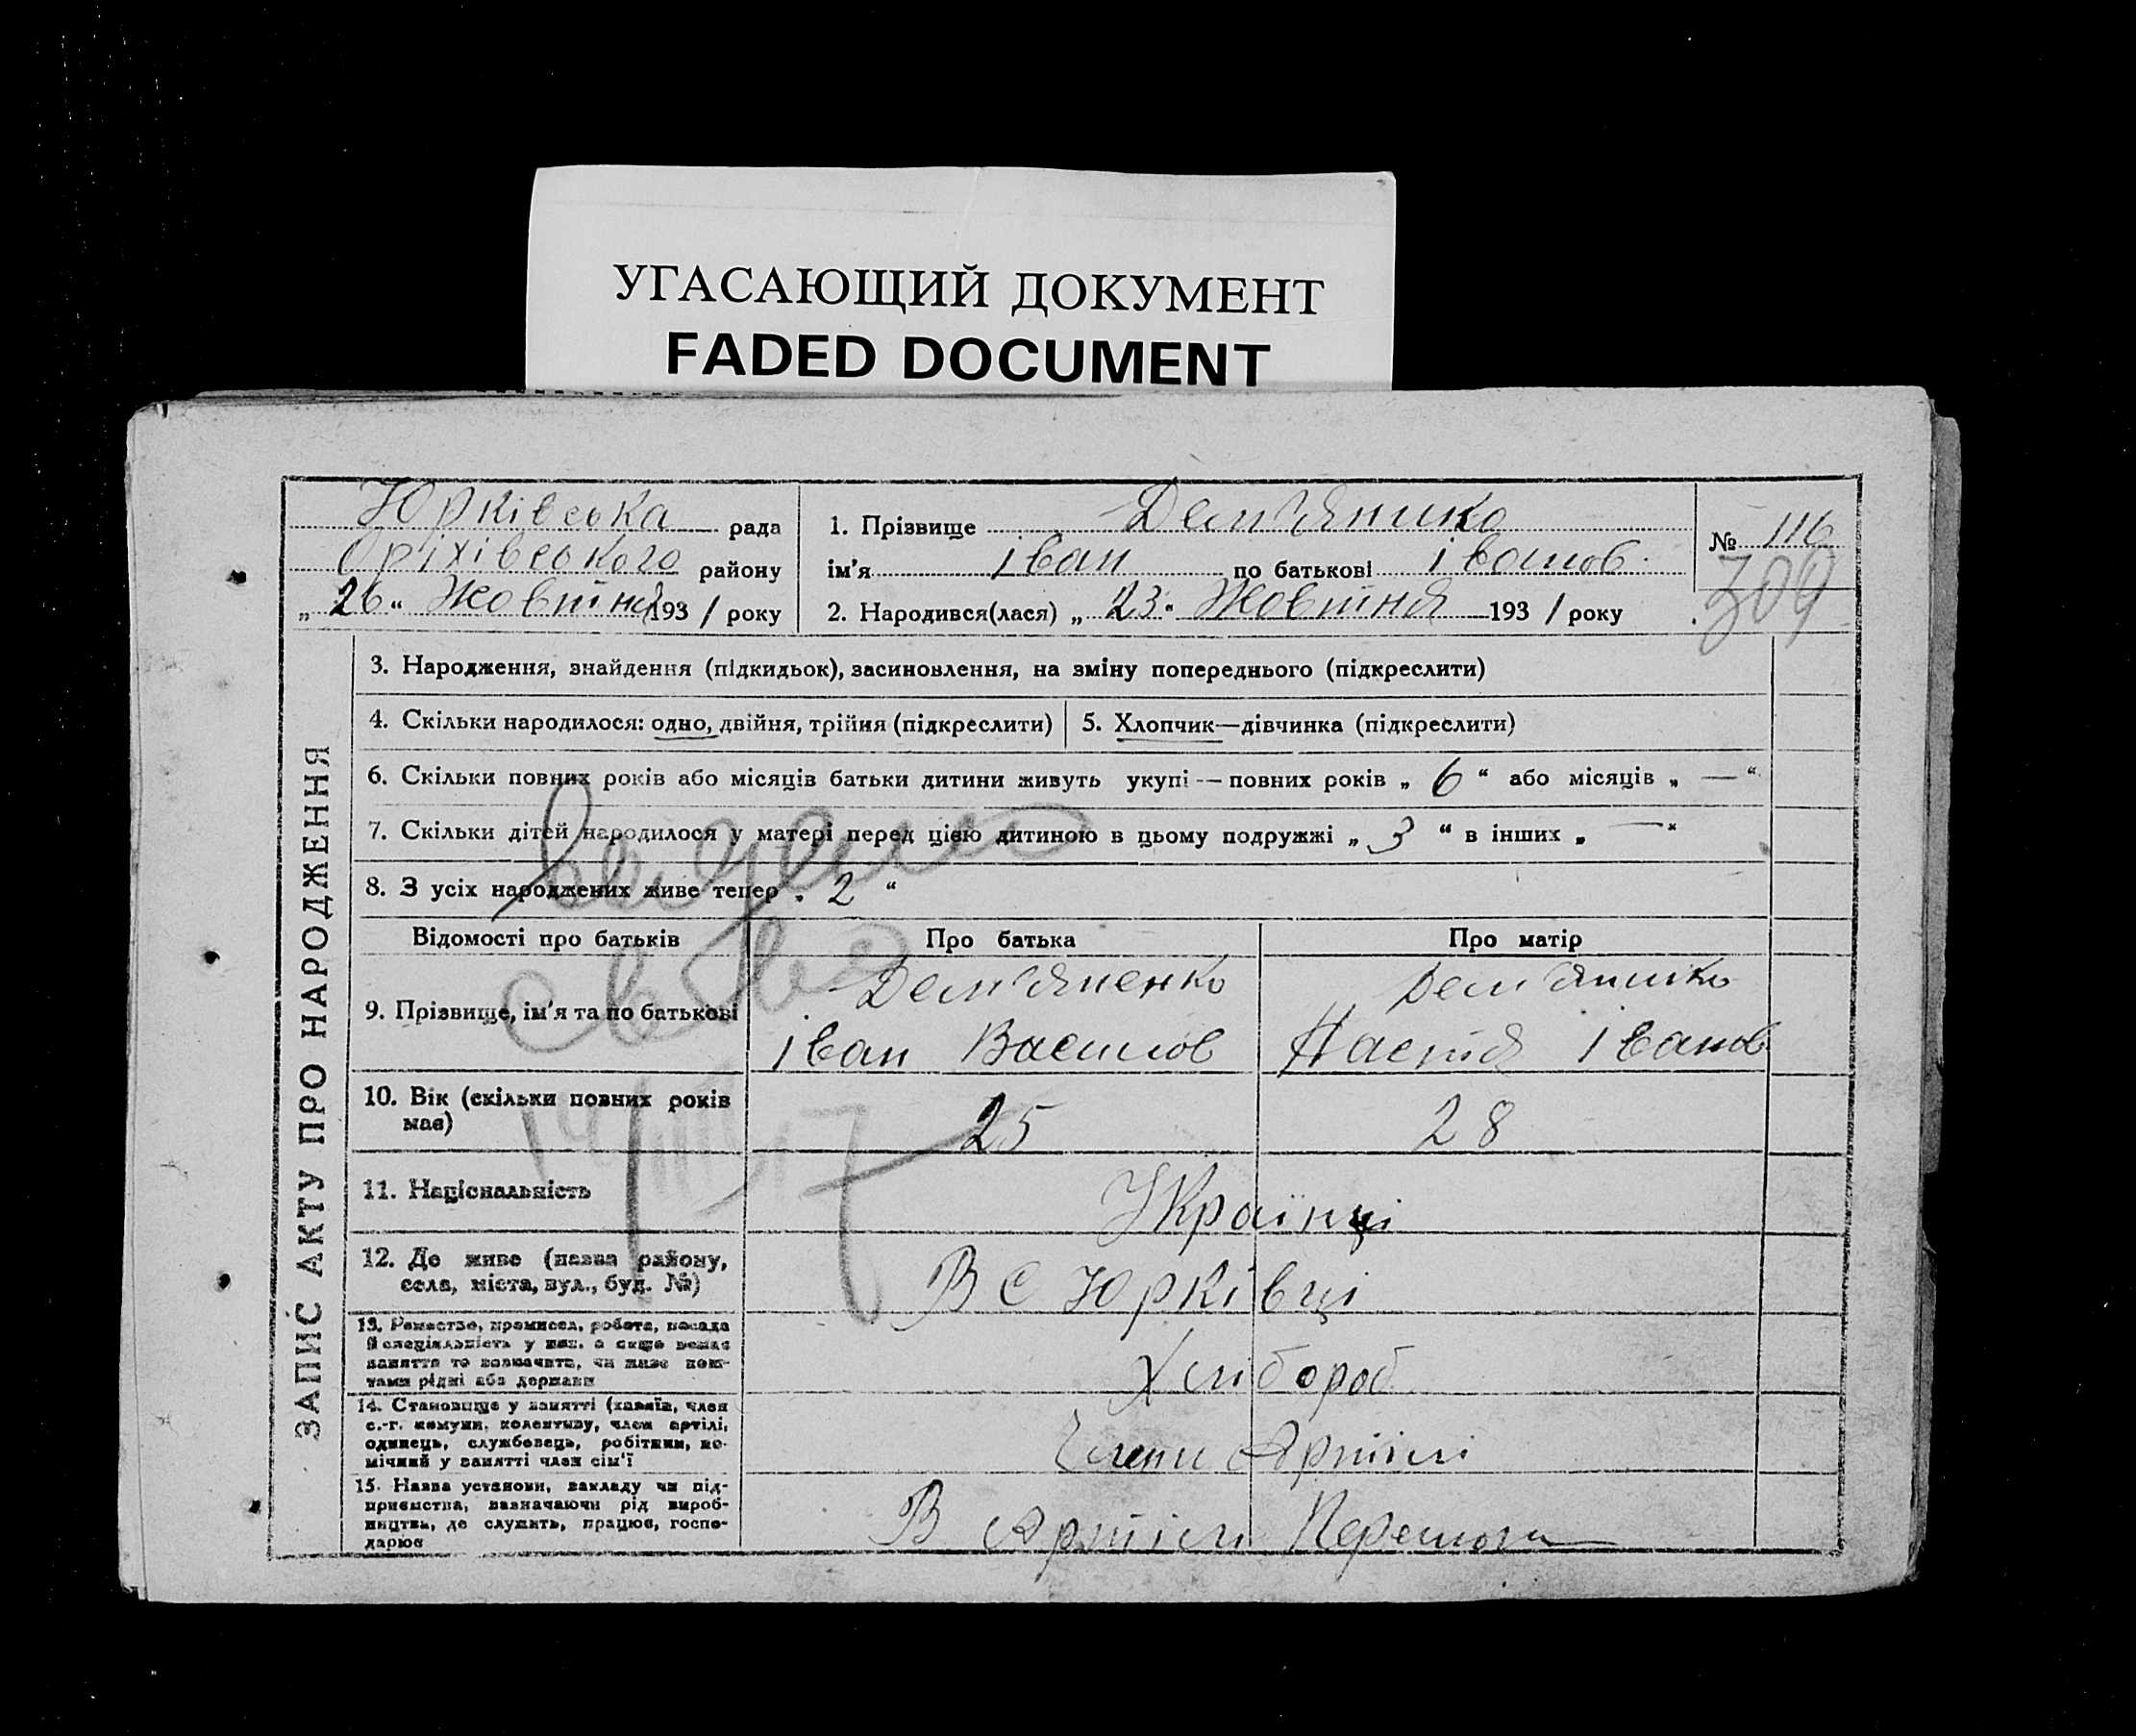 УГАСАЮЩИЙ ДОКУМЕНТ
FADED DOCUMENT
Юрківська рада
Оріхівського району
„ 26 “ Жовтня 193 1 року
1. Прізвище Дем'яненко
ім'я іван по батькові іванов.
2. Народився(лася) „ 23 “ Жовтня 193 1 року
№ 116
309
ЗАПИС АКТУ ПРО НАРОДЖЕННЯ
3. Народження, знайдення (підкидьок), засиновлення, на зміну попереднього (підкреслити)
4. Скільки народилося: одно, двійня, трійня (підкреслити) 5. Хлопчик—дівчинка (підкреслити)
6. Скільки повних років або місяців батьки дитини живуть укупі — повних років „ 6 “ або місяців „ — “
7. Скільки дітей народилося у матері перед цією дитиною в цьому подружжі „ 3 “ в інших „ — “
8. З усіх народжених живе тепер „ 2 “
Відомості про батьків Про батька Про матір
9. Прізвище, ім'я та по батькові
Дем'яненко
іван Василов
Дем'яненко
Настя іванов
10. Вік (скільки повних років
має)
25
28
11. Національність
Українці
12. Де живе (назва району,
села, міста, вул., буд. №)
В С Юрківці
13. Ремество, промисел, робота, посада
й спеціяльність у них, а якщо немає
заняття то зазначити, чи живе кош-
тами рідні або держави
Хлібороб
14. Становище у занятті (хазяїн, член
с.-г. комуни, колективу, член артілі,
одинець, службовець, робітник, по-
мічний у занятті член сім'ї
Члени Артілі
15. Назва установи, закладу чи під-
приємства, зазначаючи рід вироб-
ництва, де служить, працює, госпо-
дарює
В Артілі Перемога